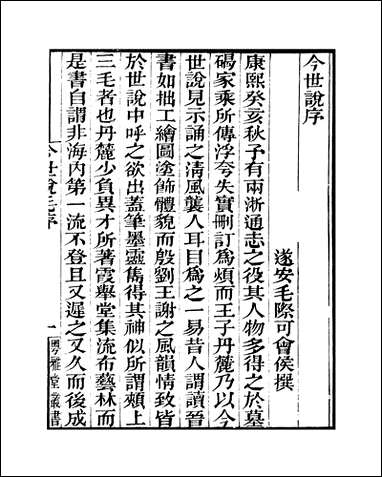 今世說序
遂安毛際可會侯撰
康熙癸亥秋予有兩浙通志之役其人物多得之於墓
碣家乘所傳浮夸失實刪訂爲煩而王子丹麓乃以今
世說見示誦之清風襲人耳目爲之一易昔人謂讀晉
書如拙工繪圖塗飾體貌而殷劉王謝之風韻情致皆
於世說中呼之欲出蓋筆墨靈雋得其神似所謂頰上
三毛者也丹麓少負異才所著霞舉堂集流布藝林而
是書自謂非海内第一流不登且又遲之又久而後成
今世說毛序
一
粵雅堂叢書